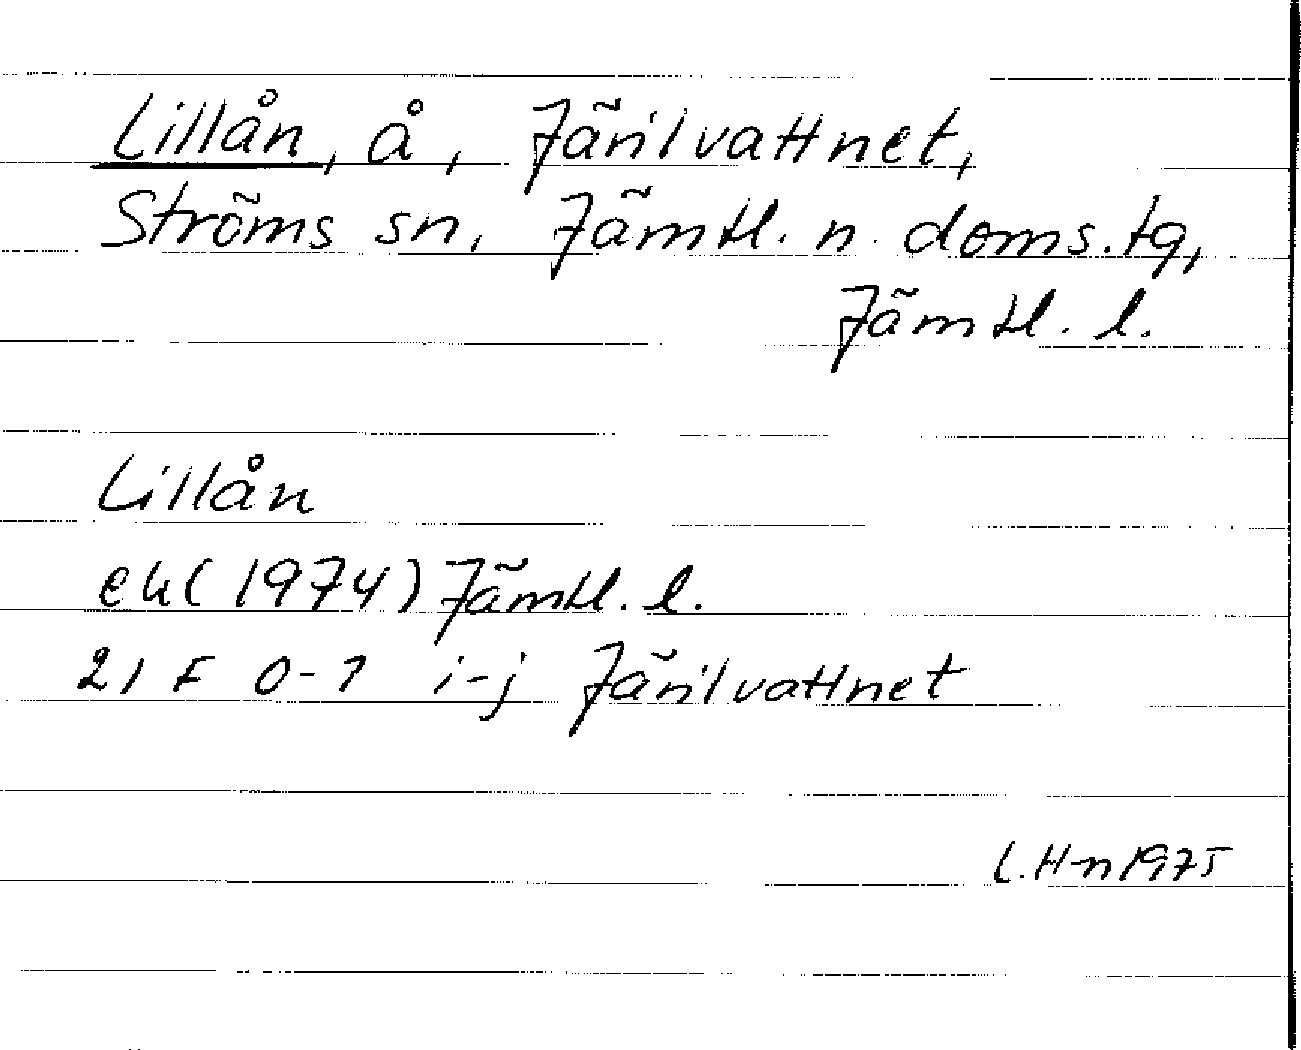 Lillån, å, Järilvattnet,
Ströms sn, Jämtl. n. doms.tg,
Jämtl. l.
Lillån
ek (1974) Jämtl. l.
21 F 0-1 i-j Järilvattnet
L.H-n 1975